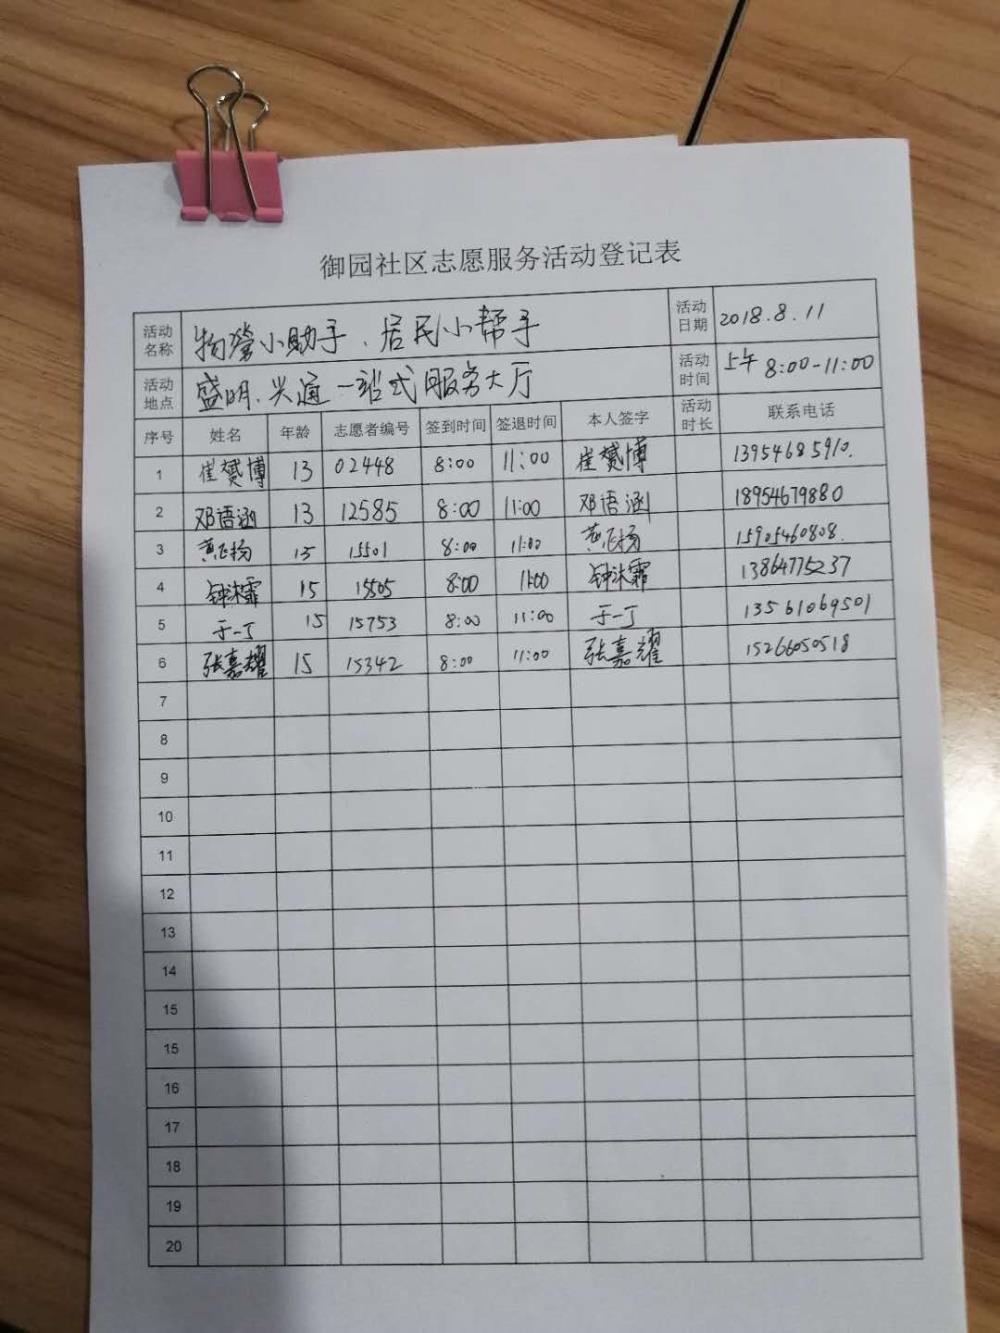 御园社区志愿服务活动登记表
活动名称 物管小助手、居民小帮手 活动日期 2018.8.11
活动地点 盛明、兴通一站式服务大厅 活动时间 上午 8:00-11:00
序号 姓名 年龄 志愿者编号 签到时间 签退时间 本人签字 活动时长 联系电话
1 崔赟博 13 02448 8:00 11:00 崔赟博 13954685910.
2 邓语涵 13 12585 8:00 11:00 邓语涵 18954679880
3 黄飞扬 15 15501 8:00 11:00 黄飞扬 15905460808.
4 钟沐霏 15 15505 8:00 11:00 钟沐霏 13864775237
5 于一丁 15 15753 8:00 11:00 于一丁 13561069501
6 张嘉耀 15 15342 8:00 11:00 张嘉耀 15266050518
7
8
9
10
11
12
13
14
15
15
16
17
18
19
20